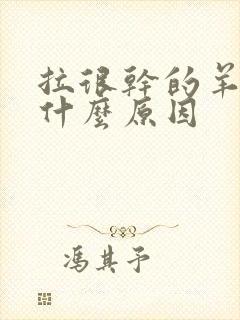 拉很幹的羊
什麼原因
馮其予